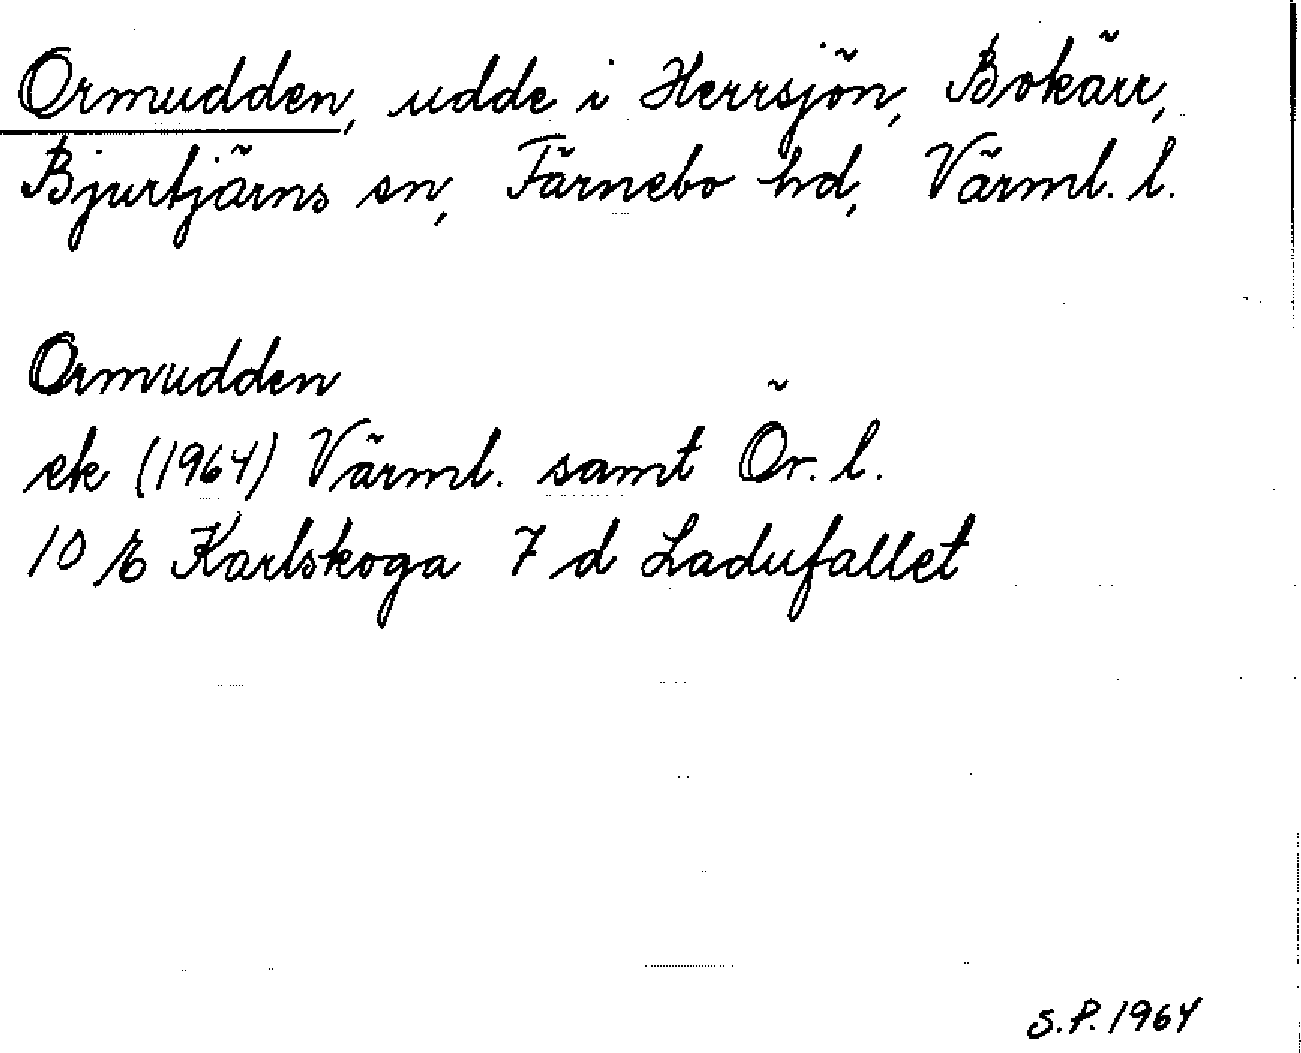 Ormudden, udde i Herrsjön, Bokärr,
Bjurtjärns sn, Färnebo hd, Värml. l.
Ormudden
ek (1964) Värml. samt Ör. l.
10 E Karlskoga 7 d Ladufallet
S.P. 1964